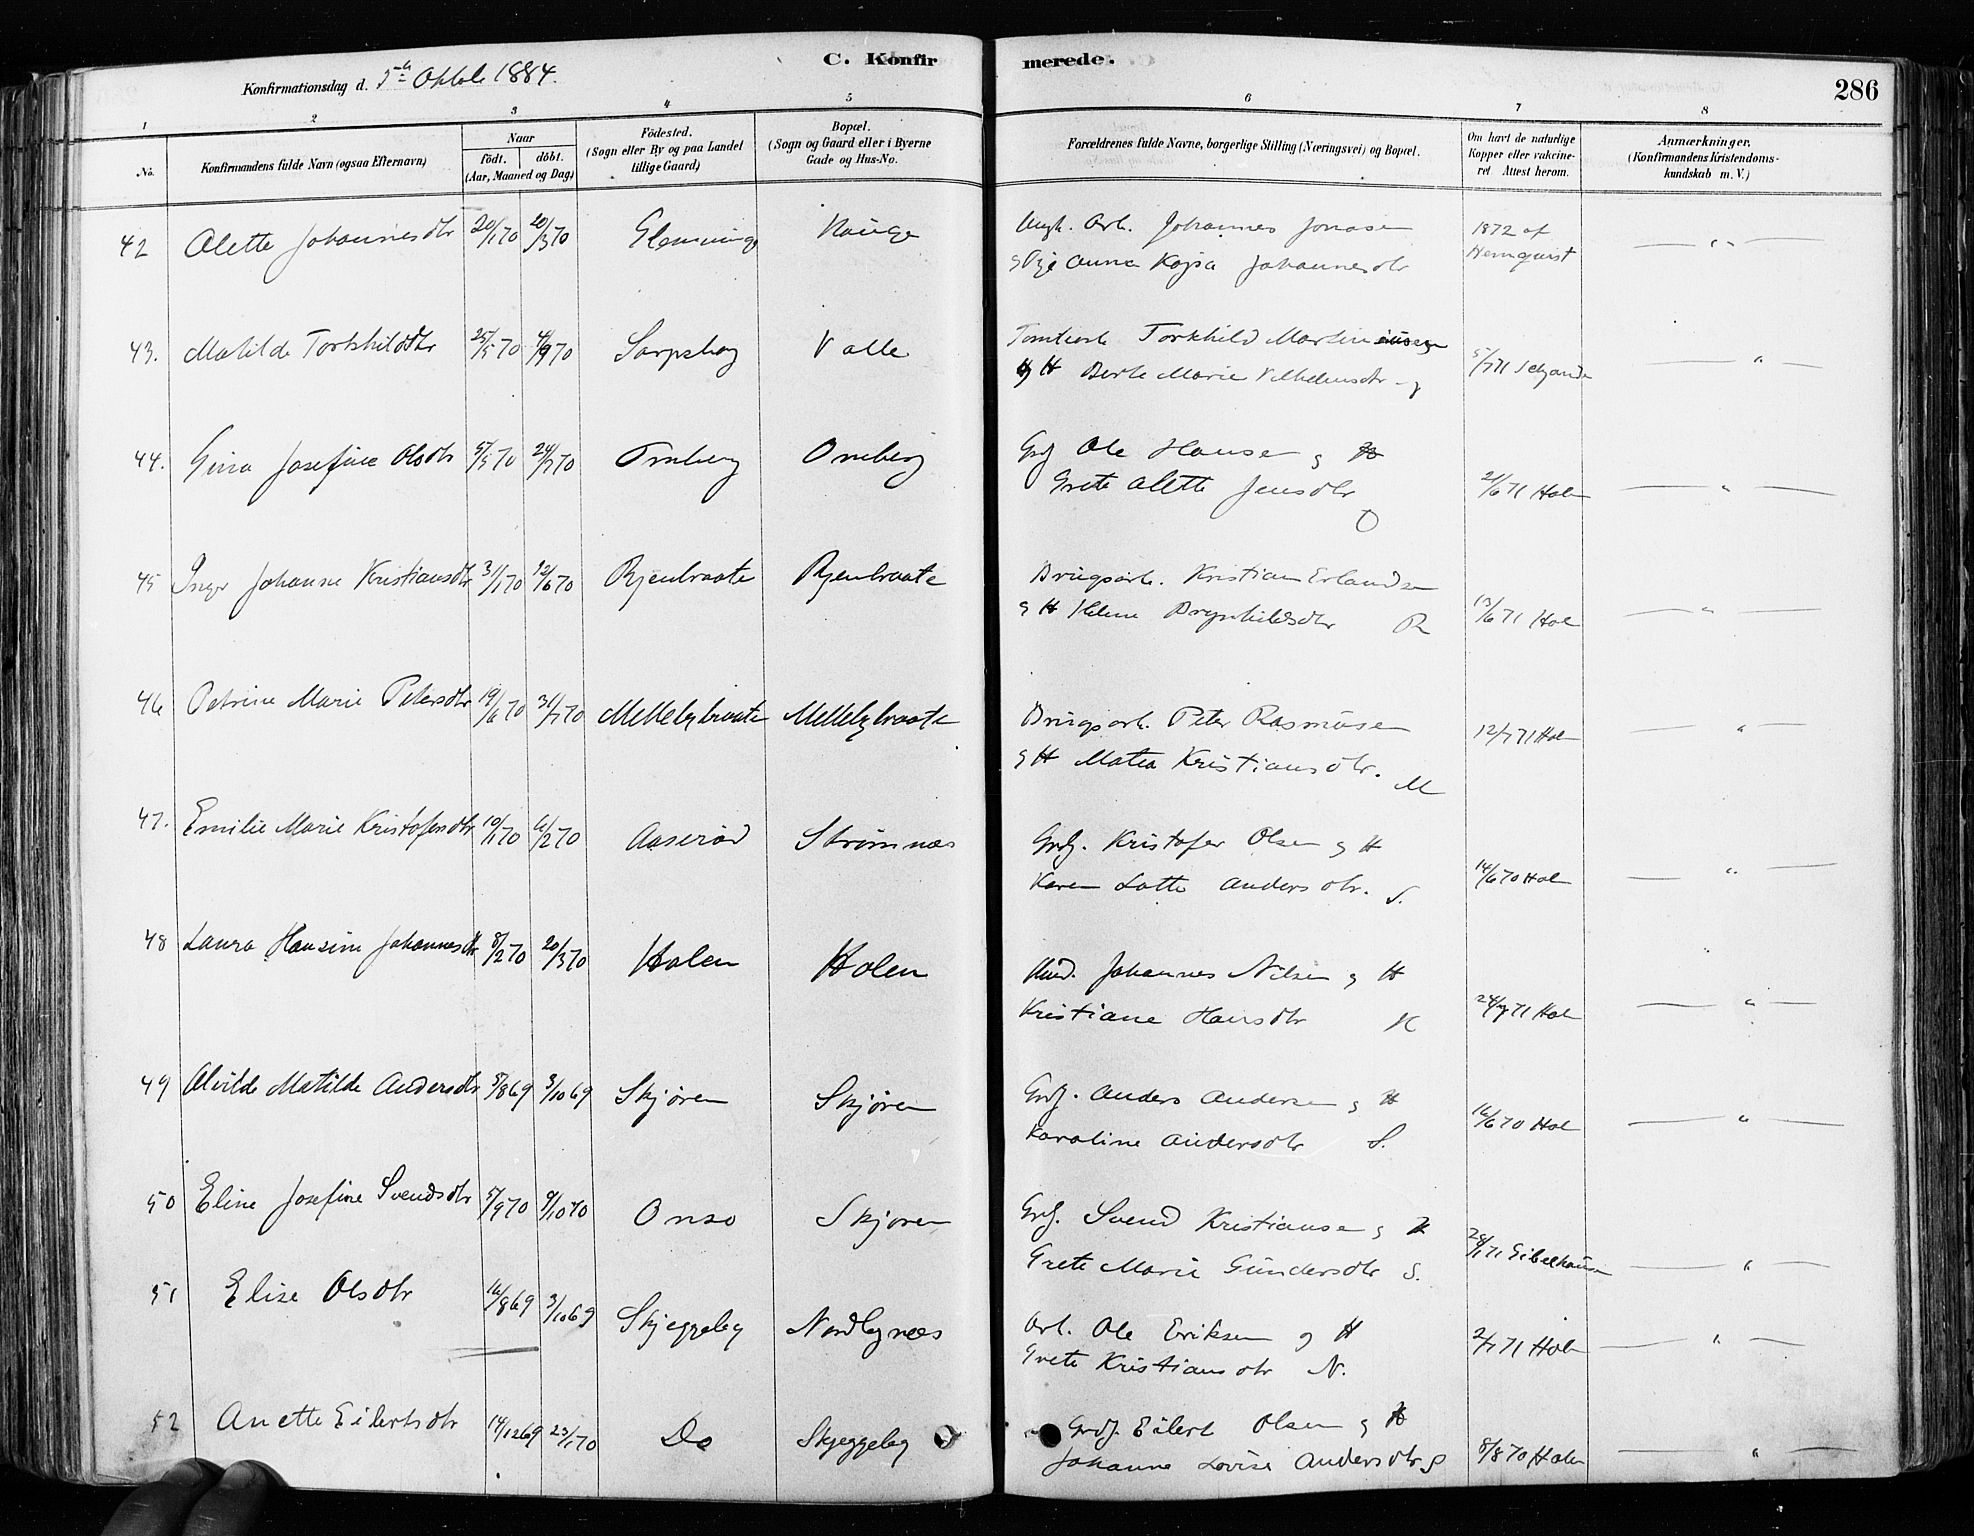 C. Konfirmerede.
286
Konfirmationsdag d. 5te Oktob 1884.
1 2 3 4 5 6 7 8
No.
Konfirmandens fulde Navn (ogsaa Efternavn)
Naar
født. døbt.
(Aar, Maaned og Dag)
Fødested.
(Sogn eller By og paa Landet
tillige Gaard)
Bopæl.
(Sogn og Gaard eller i Byerne
Gade og Hus-No.
Forældrenes fulde Navne, borgerlige Stilling (Næringsvei) og Bopæl.
Om havt de naturlige
Kopper eller vakcine-
ret Attest herom.
Anmærkninger,
(Konfirmandens Kristendoms-
kundskab m. V.)
42 Alette Johannesdtr 20/1 70 20/3 70 Glemminge Hauge Ungk. Arb. Johannes Jonasen 1872 af
og Pige Anna Kajsa Johannesdtr Hernquist
43. Matilde Torkhildsdtr 25/5 70 4/9 70 Sarpsborg Valle Tomtearb Torkhild Martin
og H Berte Marie Vilhelmsdtr 5/7 71
44. Gina Josefine Olsdtr 5/5 70 24/7 70 Omberg Omberg Grdj Ole Hansen og H
Grete Alette Jensdtr O 21/6 71 Holm
45 Inger Johanne Kristiansdtr 31/1 70 12/6 70 Rjenbraate Rjenbraate Brugsarb. Kristian Erlandsen
og H Helene Brynhildsdtr R 13/6 71 Hol
46 Petrine Marie Petersdtr 19/6 70 31/7 70 Mellebybraate Mellebybraate Brugsarb. Peter Rasmusen 12/7 71 Holm
og H Matea Kristiansdtr. M
47. Emilie Marie Kristofersdtr 10/1 70 6/2 70 Aaserød Strømnæs Grdj. Kristofer Olsen og H
Karen Lotte Andersdtr. S. 14/6 70 Hol
48 Laura Hansine Johannesdtr 8/2 70 20/3 70 Holen Holen Husd. Johannes Nilsen og H
Kristiane Hansdtr H 24/7 71 Hol
49 Alvilde Matilde Andersdtr 5/8 69 3/10 69 Skjøren Skjøren Grdj. Anders Andersen og H
Karoline Andersdtr S. 16/6 70 Hol
50 Eline Josefine Svendsdtr 5/9 70 9/10 70 Onsø Skjøren Grdj. Svend Kristiansen og H
Grete Marie Gundersdtr S. 28/1 71
51 Elise Olsdtr 16/8 69 3/10 69 Skjeggeby Nordbynæs Arb. Ole Eriksen og H 2/7 71 Holm
Grete Kristiansdtr N.
52 Anette Eilertsdtr 14/12 69 23/1 70 Do Skjeggeby Grdj. Eilert Olsen og H
Johanne Lovise Andersdtr S 8/8 70 Holm